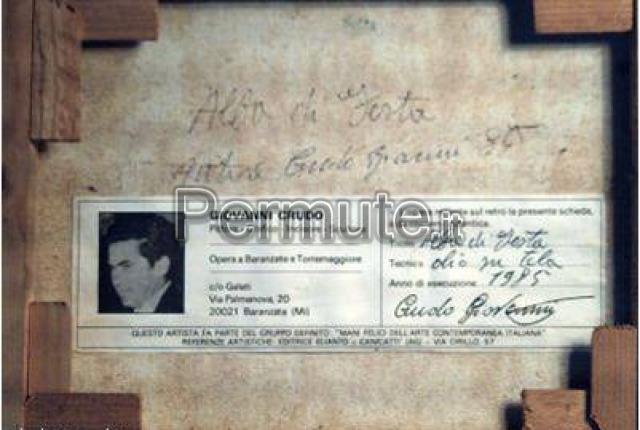 Alba di festa
Autore Crudo Gianni 85
Permute.it
GIOVANNI CRUDO
sul retro la presente scheda,
Alba di Festa
Opera a Baranzate e Torremaggiore
Tecnica olio su tela
Anno di esecuzione 1985
c/o Galati
Via Palmanova, 20
20021 Baranzate (Mi)
Crudo Giovanni
QUESTO ARTISTA FA PARTE DEL GRUPPO DEFINITO: "MANI FELICI DELL'ARTE CONTEMPORANEA ITALIANA"
REFERENZE ARTISTICHE: EDITRICE ELIANTO - CANICATTI' (AG) - VIA CIRILLO, 57